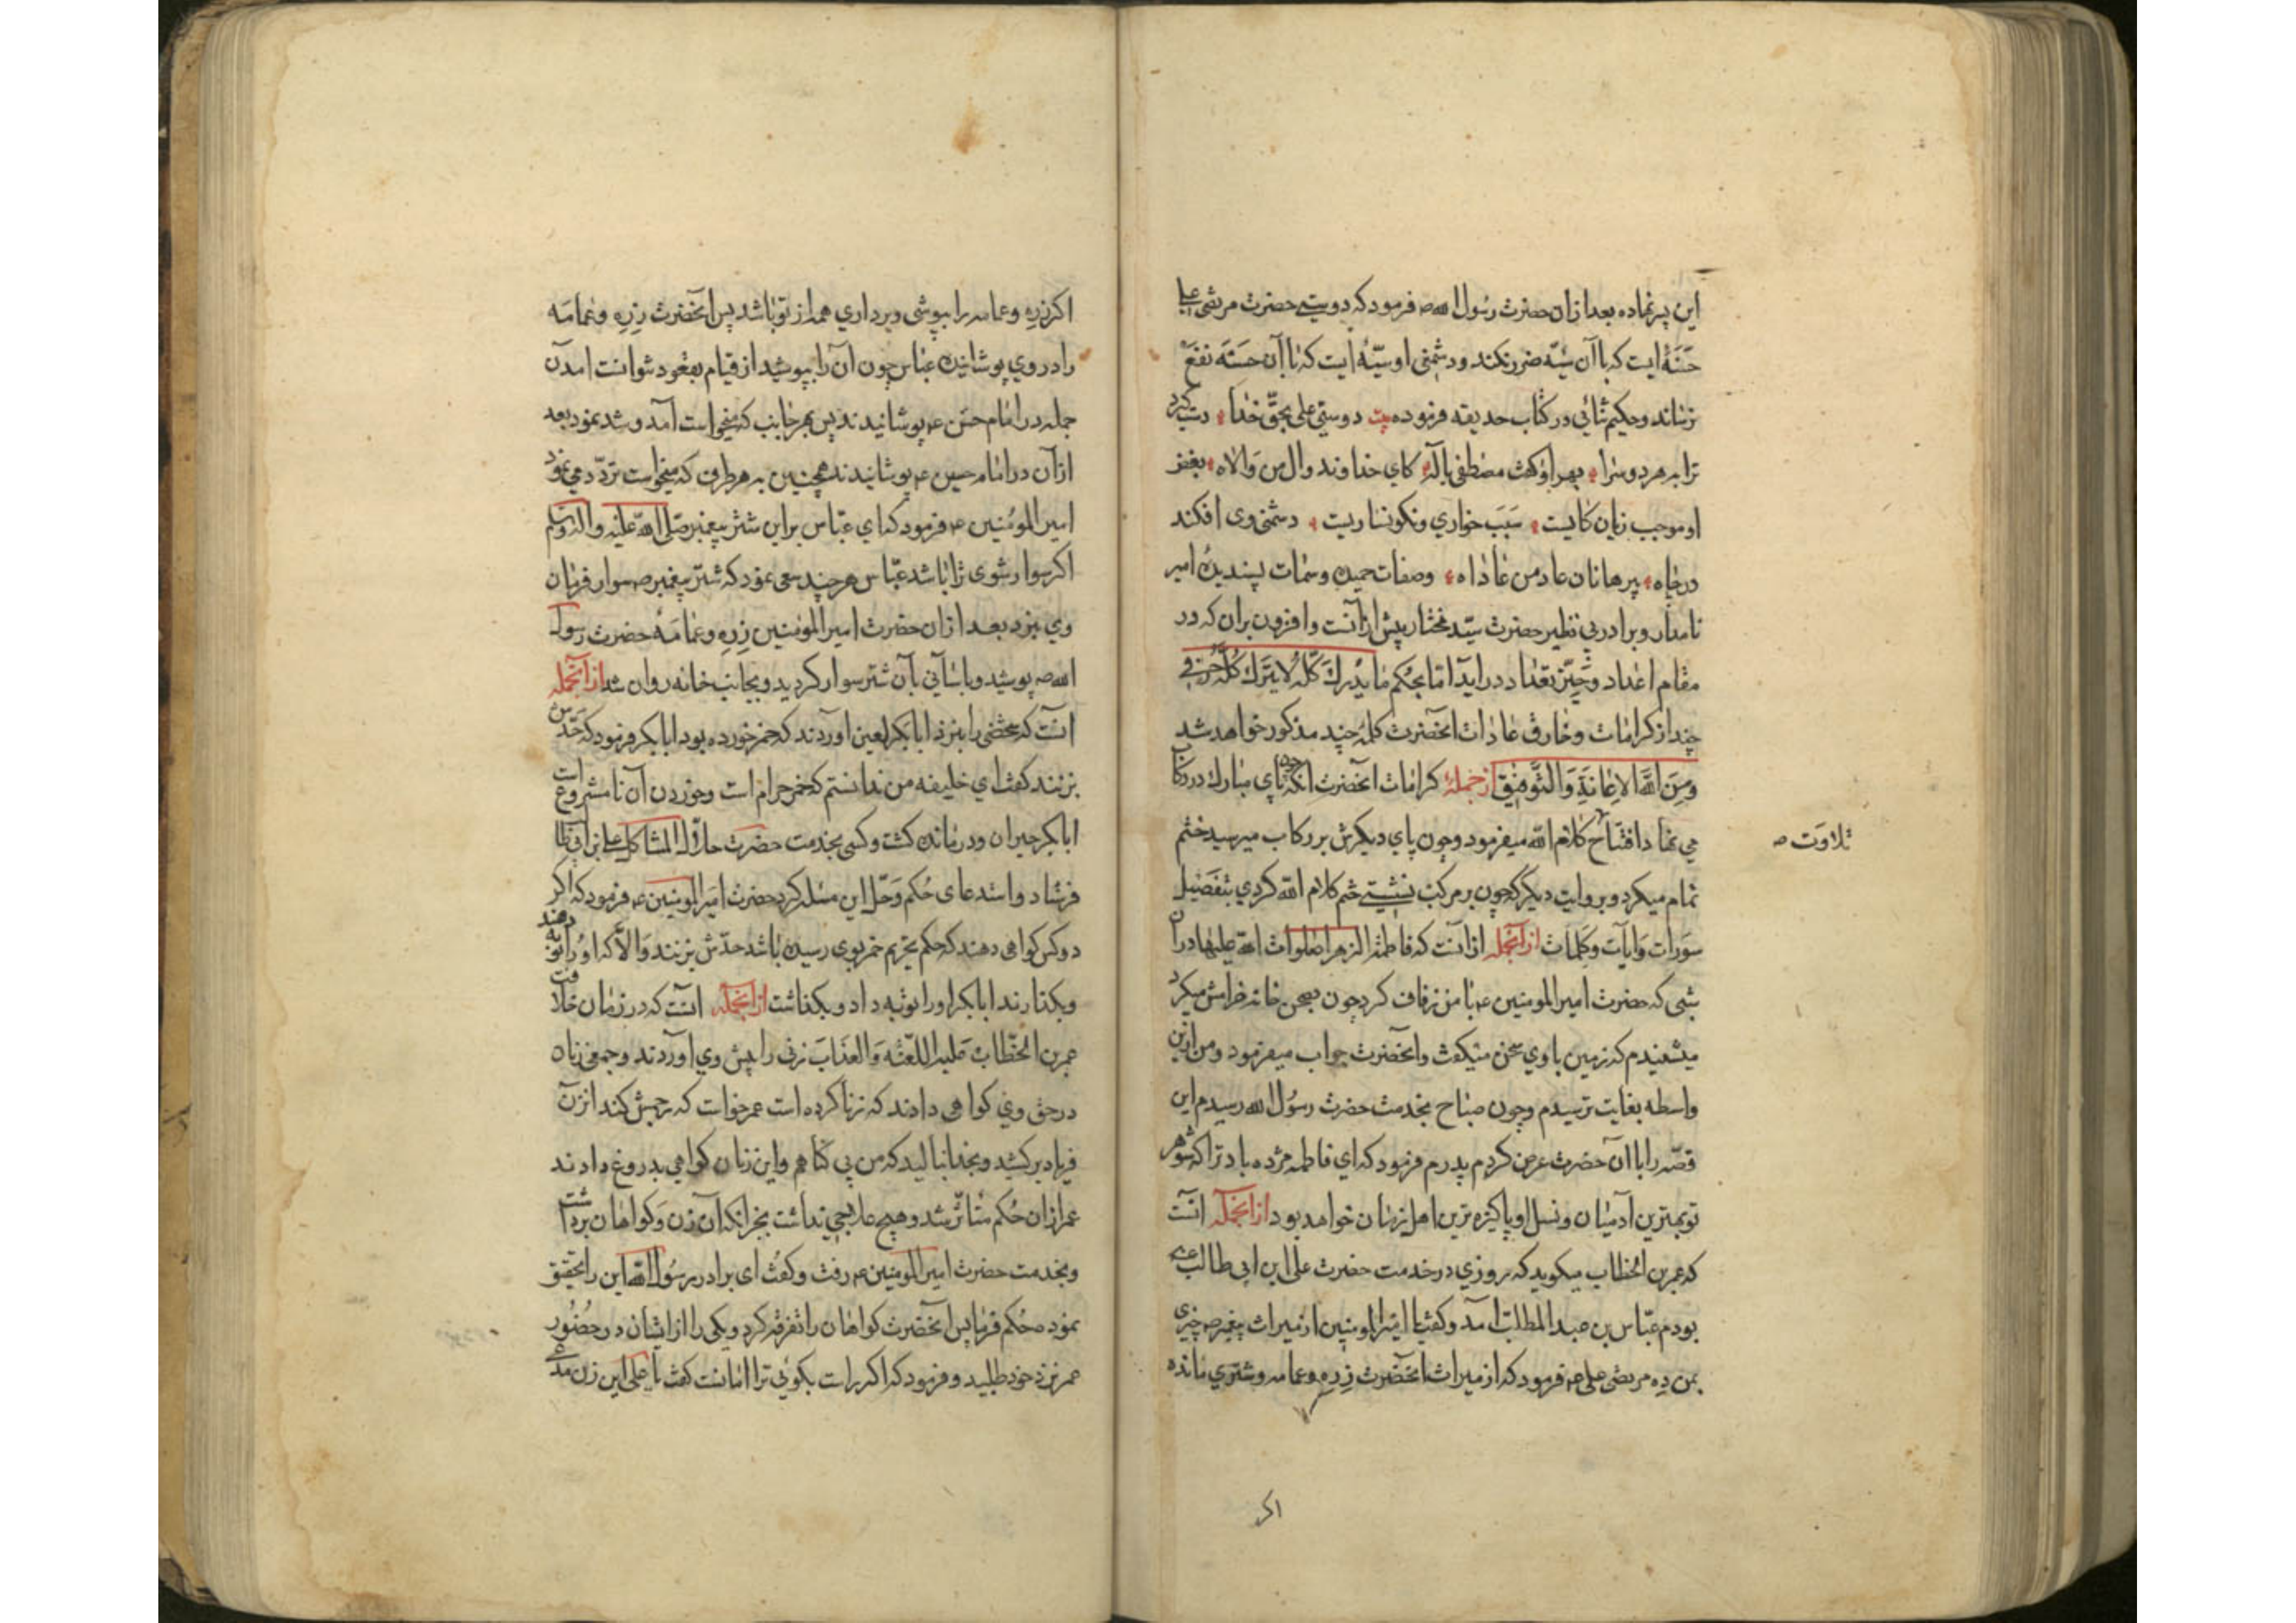 این پر نماده بعد ازان حضرت رسول الله ص فرمود که دوستی حضرت مرتضی علی
حسنهٔ ایست که با آن سیّئه ضرر نکند و دشمنی او سیّئهٔ ایست که با آن حسنه نفع
نرساند و حکیم ثنائی در کتاب حدیقه فرموده بیت دوستی علی بحقّ خدا دست کیرد
ترا بهر دو سرا بهر او کفت مصطفی باله کای خداوند وال من والاه بغض
او موجب زیان کاریست سبب خواری و نکونساریست دشمنی وی افکند
در چاه پیر هانان عاد من عاداه وصفات حمیده وسمات پسندیده امیر
نامدار و برادر بی نظیر حضرت سیّد مختار پیش ازآنست وافزون بران که در
مقام اعداد و حیّز تعداد در اید امّا بحکم ما یدرك کلّه لا یترك کلّه حرفی
چند از کرامات و خارق عادات انحضرت کلمهٔ چند مذکور خواهد شد
ومن الله الاعانة والتوفیق از جملهٔ کرامات انحضرت انکه چون پای مبارك در رکاب
می نهاد افتتاح کلام الله میفرمود و چون پای دیکرش بر رکاب میرسید ختم
تلاوت ص
تمام میکرد و بروایت دیکر که چون بر مرکب نشستی ختم کلام الله کردی بتفصیل
سورات وایات وکلمات ازآنجمله ازانست که فاطمة الزهرا صلوات الله علیها دران
شبی که حضرت امیر المومنین ع با من زفاف کرد چون بصحن خانه خرامش میکرد
میشنیدم که زمین با وی سخن میکفت وانحضرت جواب میفرمود ومن ازین
واسطه بغایت ترسیدم وچون صباح بخدمت حضرت رسول الله رسیدم این
قصّه را با آن حضرت عرض کردم پدرم فرمود که ای فاطمه مژده باد ترا که شوهر
تو بهترین آدمیان و نسل او پاکیزه ترین اهل زمان خواهد بود ازآنجمله انست
که عمر بن الخطاب میکوید که روزی در خدمت حضرت علی ابن ابی طالب ع
بودم عبّاس بن عبد المطلب آمد وکفت یا امیر المومنین از میراث پیغمبر ص چیزی
بمن ده مرتضی علی ع فرمود که از میراث انحضرت زره وعمامه وشتری مانده
اکر
اکر زره وعمامه را بپوشی وبرداری همه از تو باشد پس انحضرت زره وعمامه
را در وی پوشانیده عبّاس چون آن را بپوشید از قیام بقعود نتوانست امدن
جمله در امام حسن ع پوشانیدند پس بهر جانب که میخواست آمد وشد نمود بعد
ازآن در امام حسین ع پوشانیدند همچنین به هر طرف که میخواست تردّد می نمود
امیر المومنین ع فرمود که ای عبّاس بر این شتر پیغمبر صلی الله علیه واله وسلم
اکر سوار شوی ترا باشد عبّاس هر چند سعی نمود که شتر پیغمبر ص سوار فرمان
وی نبرد بعد ازان حضرت امیر المومنین زره وعمامهٔ حضرت رسول
الله ص پوشید و باسانی بآن شتر سوار کردید وبجانب خانه روان شد ازآنجمله
انست که شخصی را بنزد ابابکر لعین اوردند که خمر خورده بود ابابکر فرمود که حدّش
بزنند کفت ای خلیفه من ندانستم که خمر حرام است وخوردن آن نامشروع است
ابابکر حیران ودرمانده کشت وکسی بخدمت حضرت حلّال المشاکل علی بن ابی طا
فرستاد واستدعای حکم وحلّ این مسئله کرد حضرت امیر المومنین ع فرمود که اکر
دو کس کواهی دهند که حکم تحریم خمر بوی رسیده باشد حدّش بزنند والّا که او را توبه دهند
وبکذارند ابابکر او را توبه داد وبکذاشت ازآنجمله انست که در زمان خلافت
عمر بن الخطاب علیه اللعنه والعذاب زنی را پیش وی آوردند وجمعی زنان
در حق وی کواهی دادند که زنا کرده است عمر خواست که رجمش کند انزن
فریاد برکشید وبخدا نالید که من بی کناهم واین زنان کواهی بدروغ دادند
عمر ازان حکم متاثّر شد وهیچ علاجی نداشت بجز انکه آن زن وکواهان برداشت
وبخدمت حضرت امیر المومنین ع رفت وکفت ای برادر رسول الله این را تحقیق
نموده حکم فرما پس انحضرت کواهان را تفرقه کرد ویکی را از ایشان در حضور
عمر نزد خود طلبید وفرمود که اکر راست بکوئی ترا امانست کفت یا علی این زن مدّتی